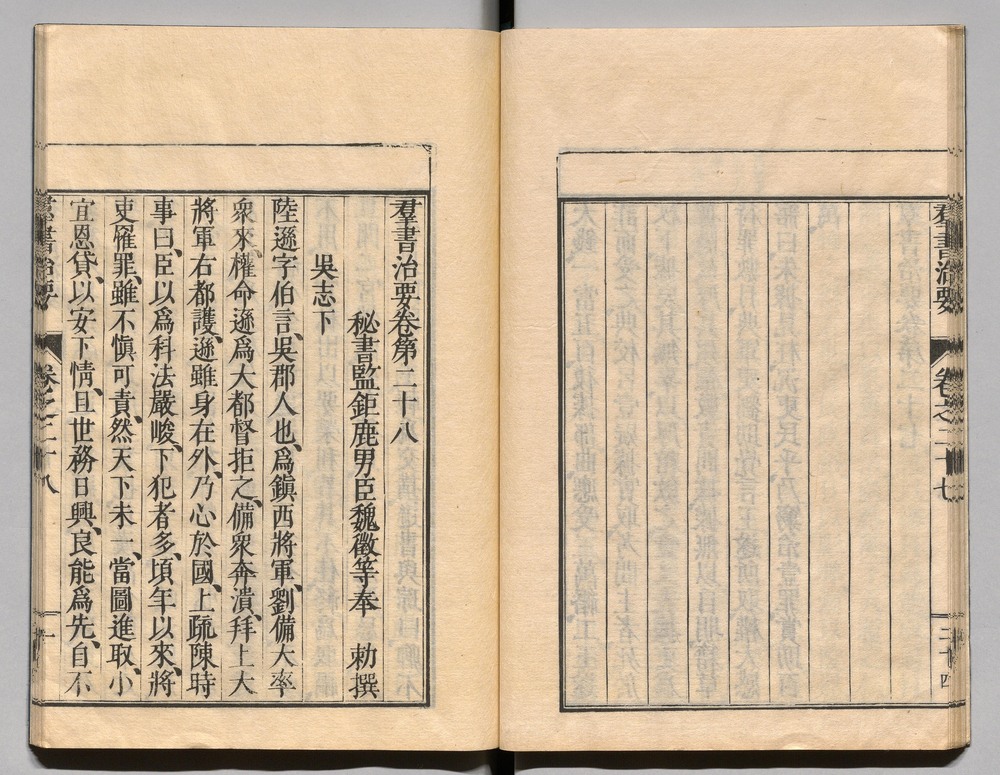 羣書治要
卷之二十七
二十四
羣書治要卷第二十八
秘書監鉅鹿男臣魏徵等奉　勅撰
吳志下
陸遜字伯言、吳郡人也、爲鎭西將軍、劉備大率
衆來、權命遜爲大都督拒之、備衆奔潰、拜上大
將軍右都護、遜雖身在外、乃心於國、上疏陳時
事曰、臣以爲科法嚴峻、下犯者多、頃年以來、將
吏罹罪、雖不愼可責、然天下未一、當圖進取、小
宜恩貸、以安下情、且世務日興、良能爲先、自不
羣書治要
卷之二十八
一